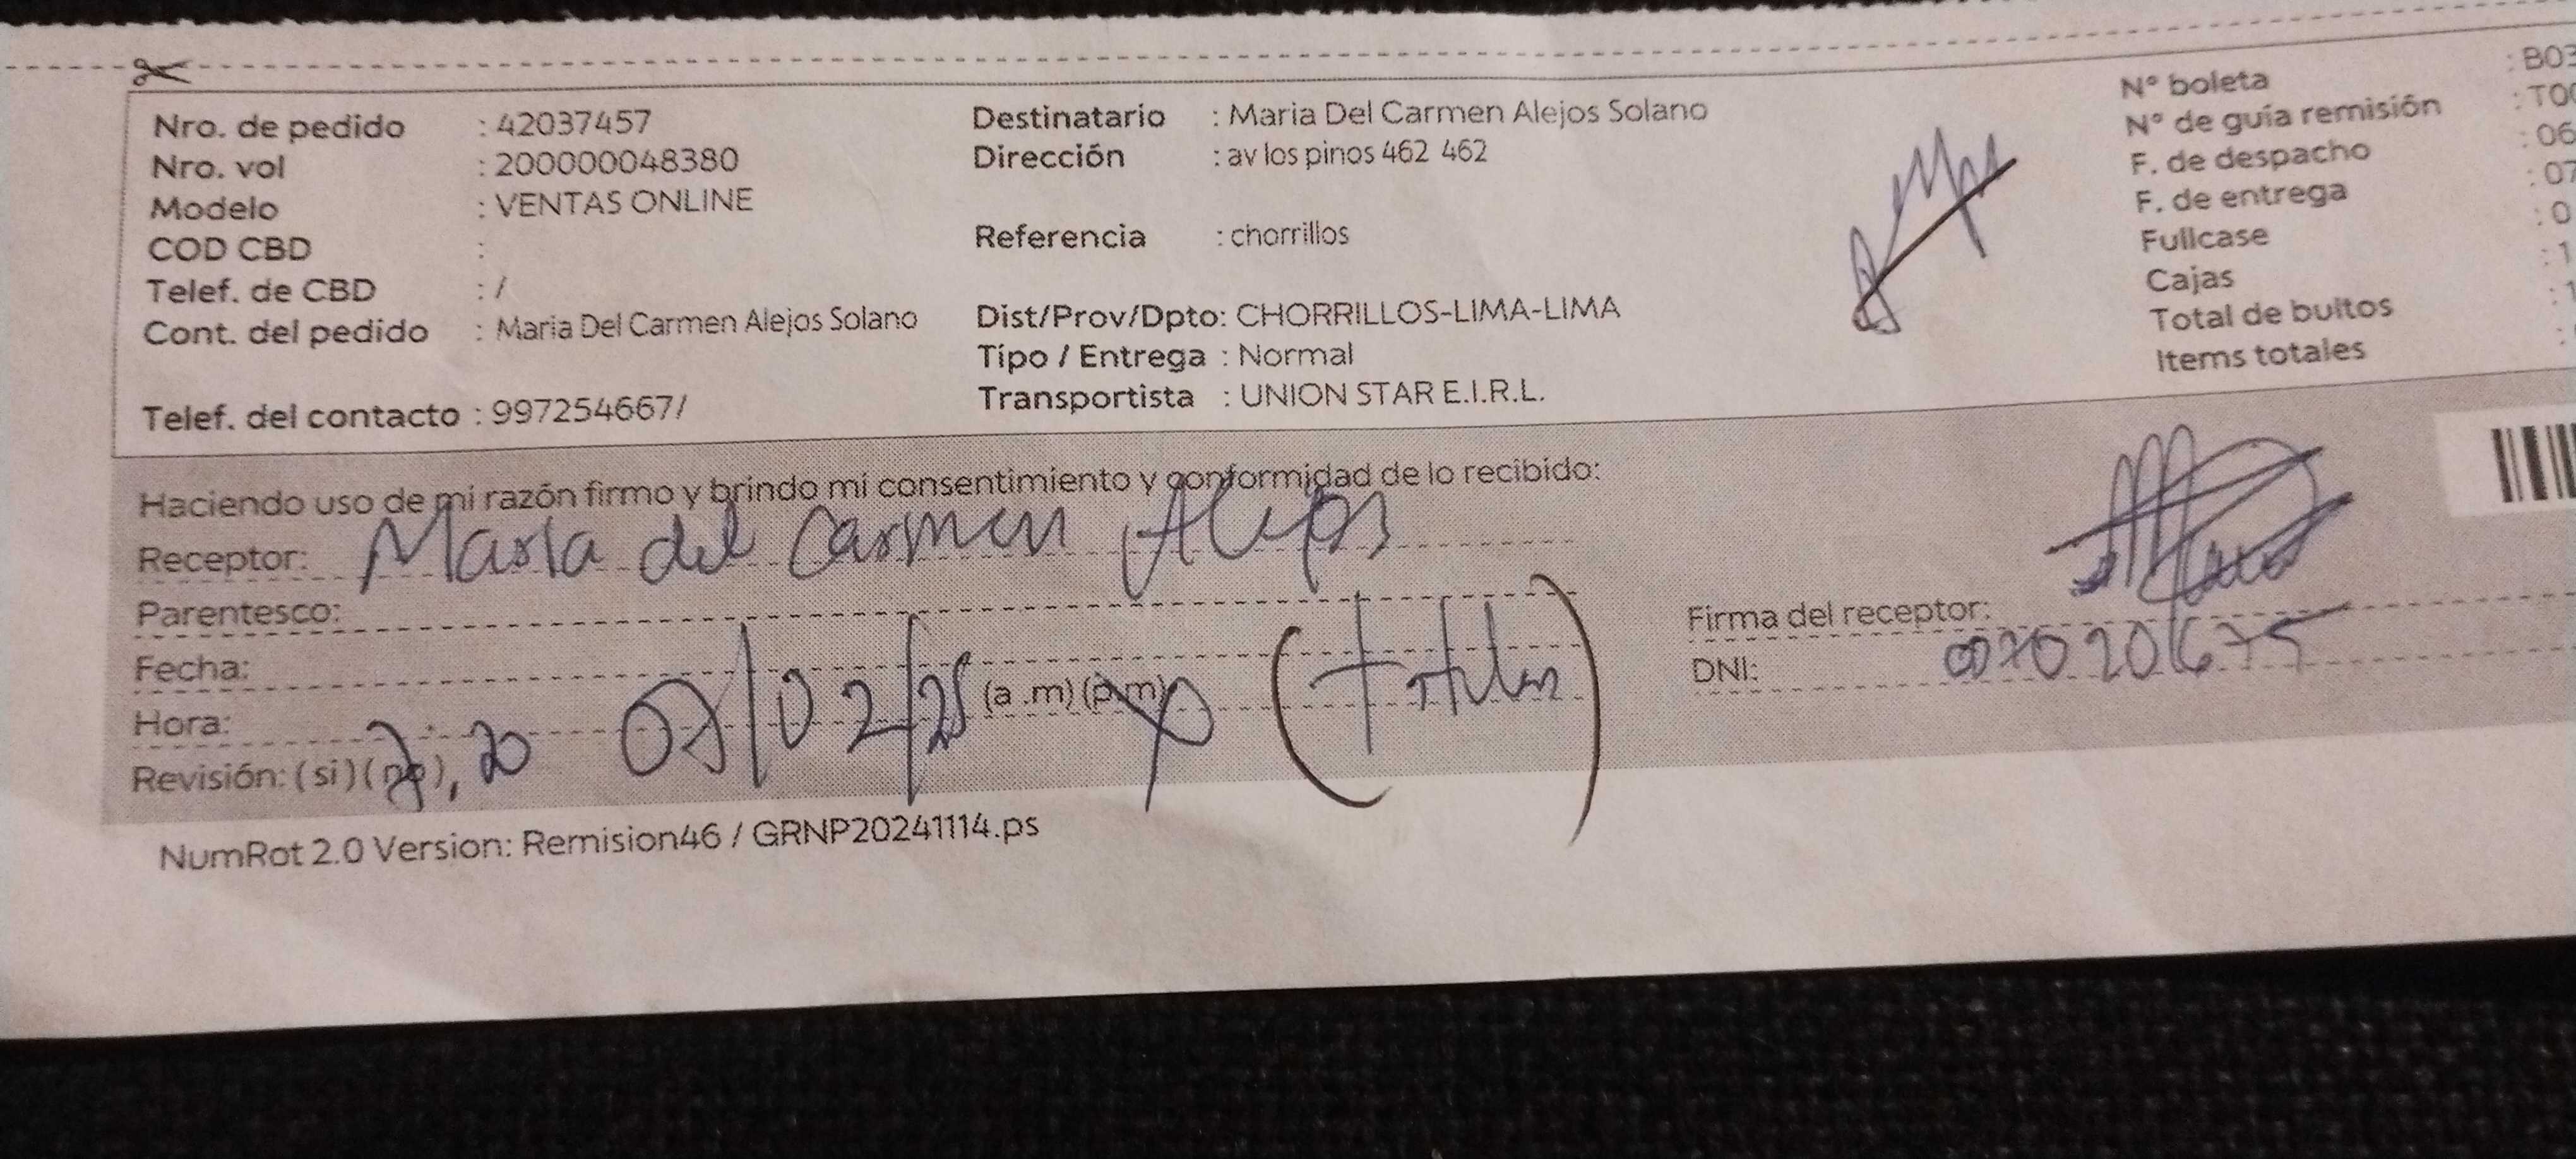 Nro. de pedido : 42037457
Nro. vol : 200000048380
Modelo : VENTAS ONLINE
COD CBD :
Telef. de CBD : /
Cont. del pedido : Maria Del Carmen Alejos Solano
Telef. del contacto : 997254667/
Destinatario : Maria Del Carmen Alejos Solano
Dirección : av los pinos 462 462
Referencia : chorrillos
Dist/Prov/Dpto: CHORRILLOS-LIMA-LIMA
Tipo / Entrega : Normal
Transportista : UNION STAR E.I.R.L.
N° boleta : B03
N° de guía remisión : T00
F. de despacho : 06
F. de entrega : 07
Fullcase : 0
Cajas : 1
Total de bultos : 1
Items totales :
Haciendo uso de mi razón firmo y brindo mi consentimiento y conformidad de lo recibido:
Receptor: Maria del Carmen Alejos
Parentesco:
Fecha: 07/02/25
Hora: (a .m) (p.m)
Revisión: (si) (no)
(titular)
Firma del receptor:
DNI:
NumRot 2.0 Version: Remision46 / GRNP20241114.ps